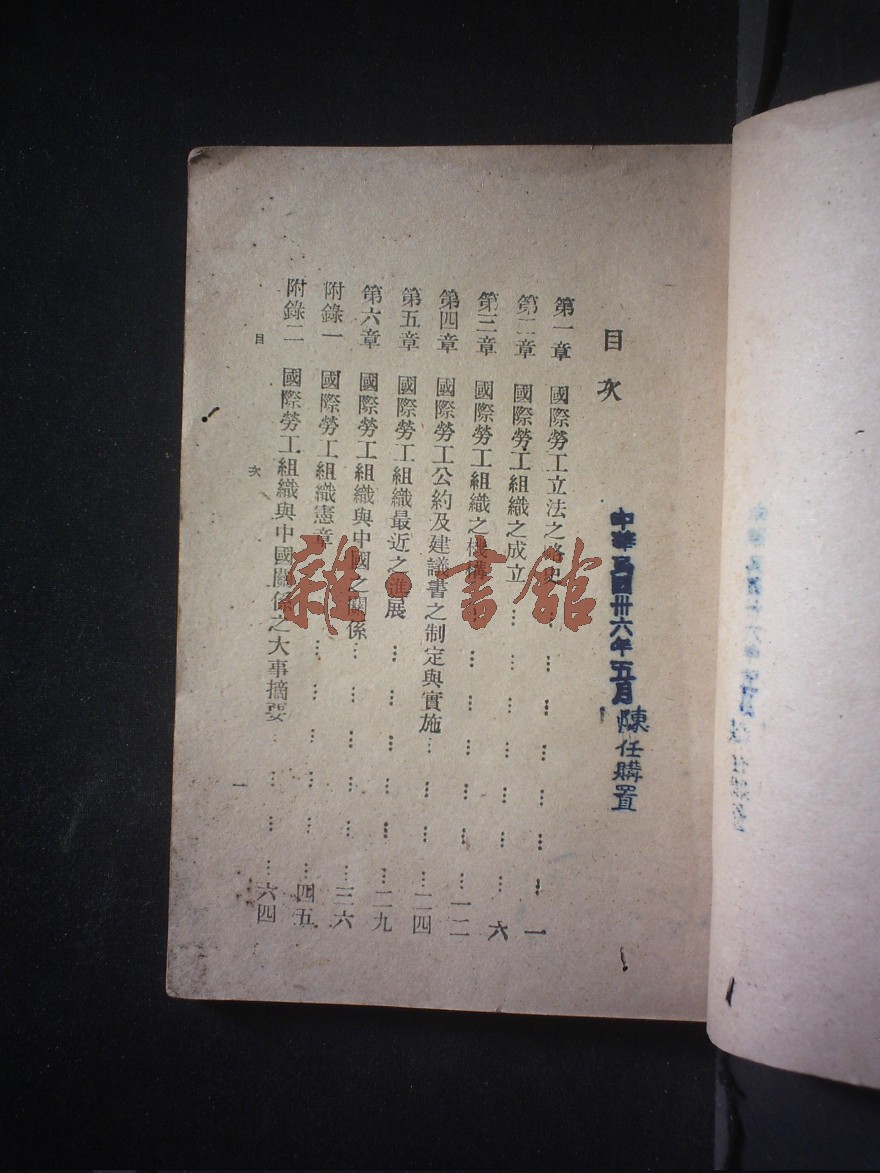 目次
中華民國卅六年五月陳任購置
第一章 國際勞工立法之略史…………………一
第二章 國際勞工組織之成立…………………六
第三章 國際勞工組織之機構…………………一二
第四章 國際勞工公約及建議書之制定與實施…………二四
第五章 國際勞工組織最近之進展…………………二九
第六章 國際勞工組織與中國之關係…………………三六
附錄一 國際勞工組織憲章…………………四五
附錄二 國際勞工組織與中國關係之大事摘要…………六四
目次 一
雜·書館